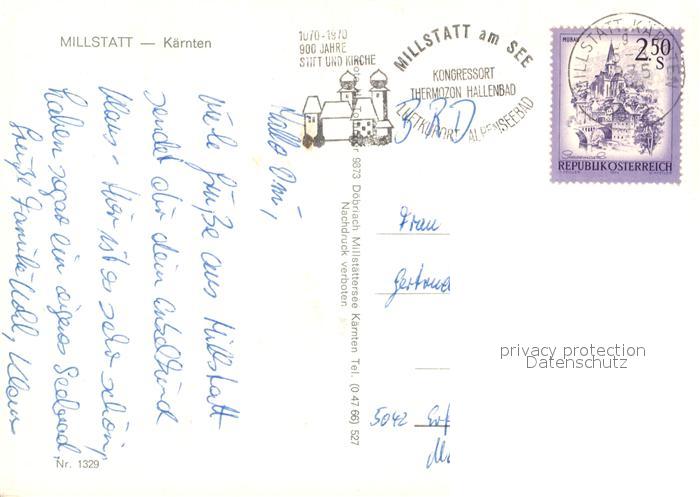 MILLSTATT — Kärnten
1070-1970
900 JAHRE
STIFT UND KIRCHE
MILLSTATT am SEE
KONGRESSORT
THERMOZON HALLENBAD
LUFTKURORT ALPENSEEBAD
MILLSTATT, KÄRNTEN
MURAU
2.50
S
REPUBLIK ÖSTERREICH
BRD
Hallo Omi,
viele Grüße aus Millstatt
sendet dir dein Enkelkind
Klaus. Hier ist es sehr schön,
haben sogar ein eigenes Seebad
Grüße Familie Klaus
9873 Döbriach Millstättersee Kärnten Tel. (0 47 66) 527
Nachdruck verboten
Frau
Gertrud
5042 Erf
Nr. 1329
privacy protection
Datenschutz